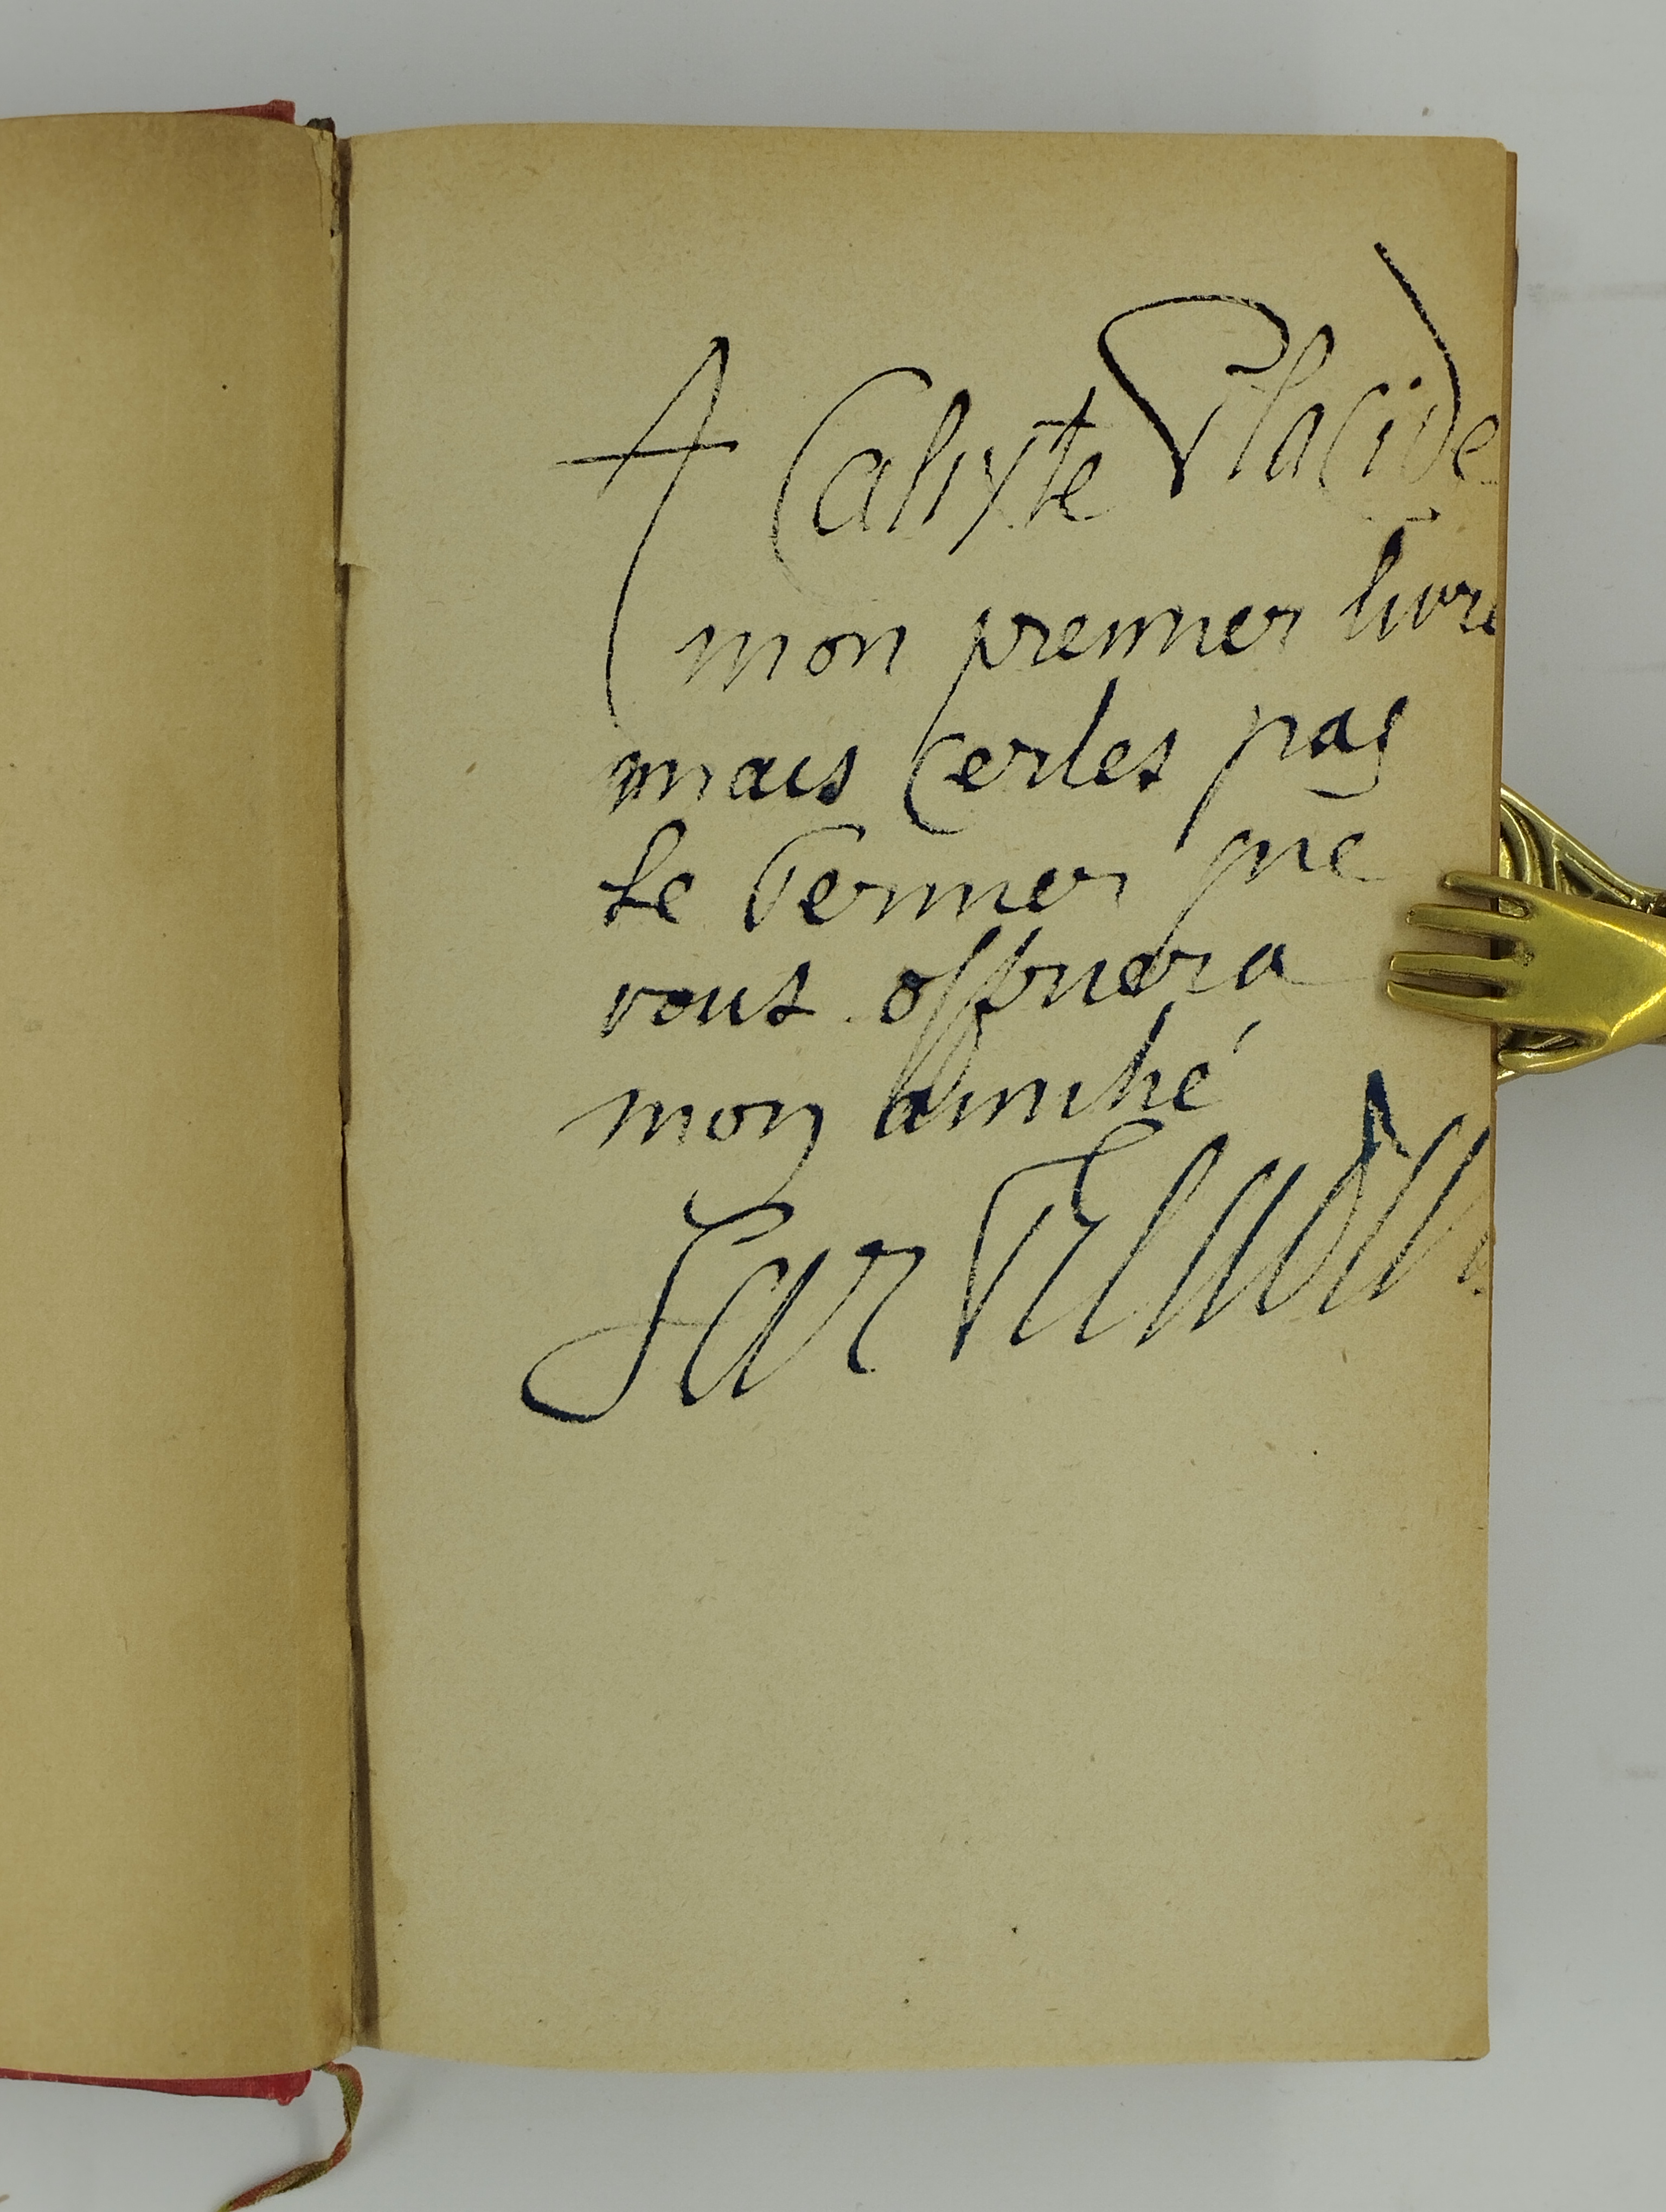 A Calixte Placide
mon premier livre
mais certes pas
le dernier que
vous offrira
mon amitié
Sar Peladan